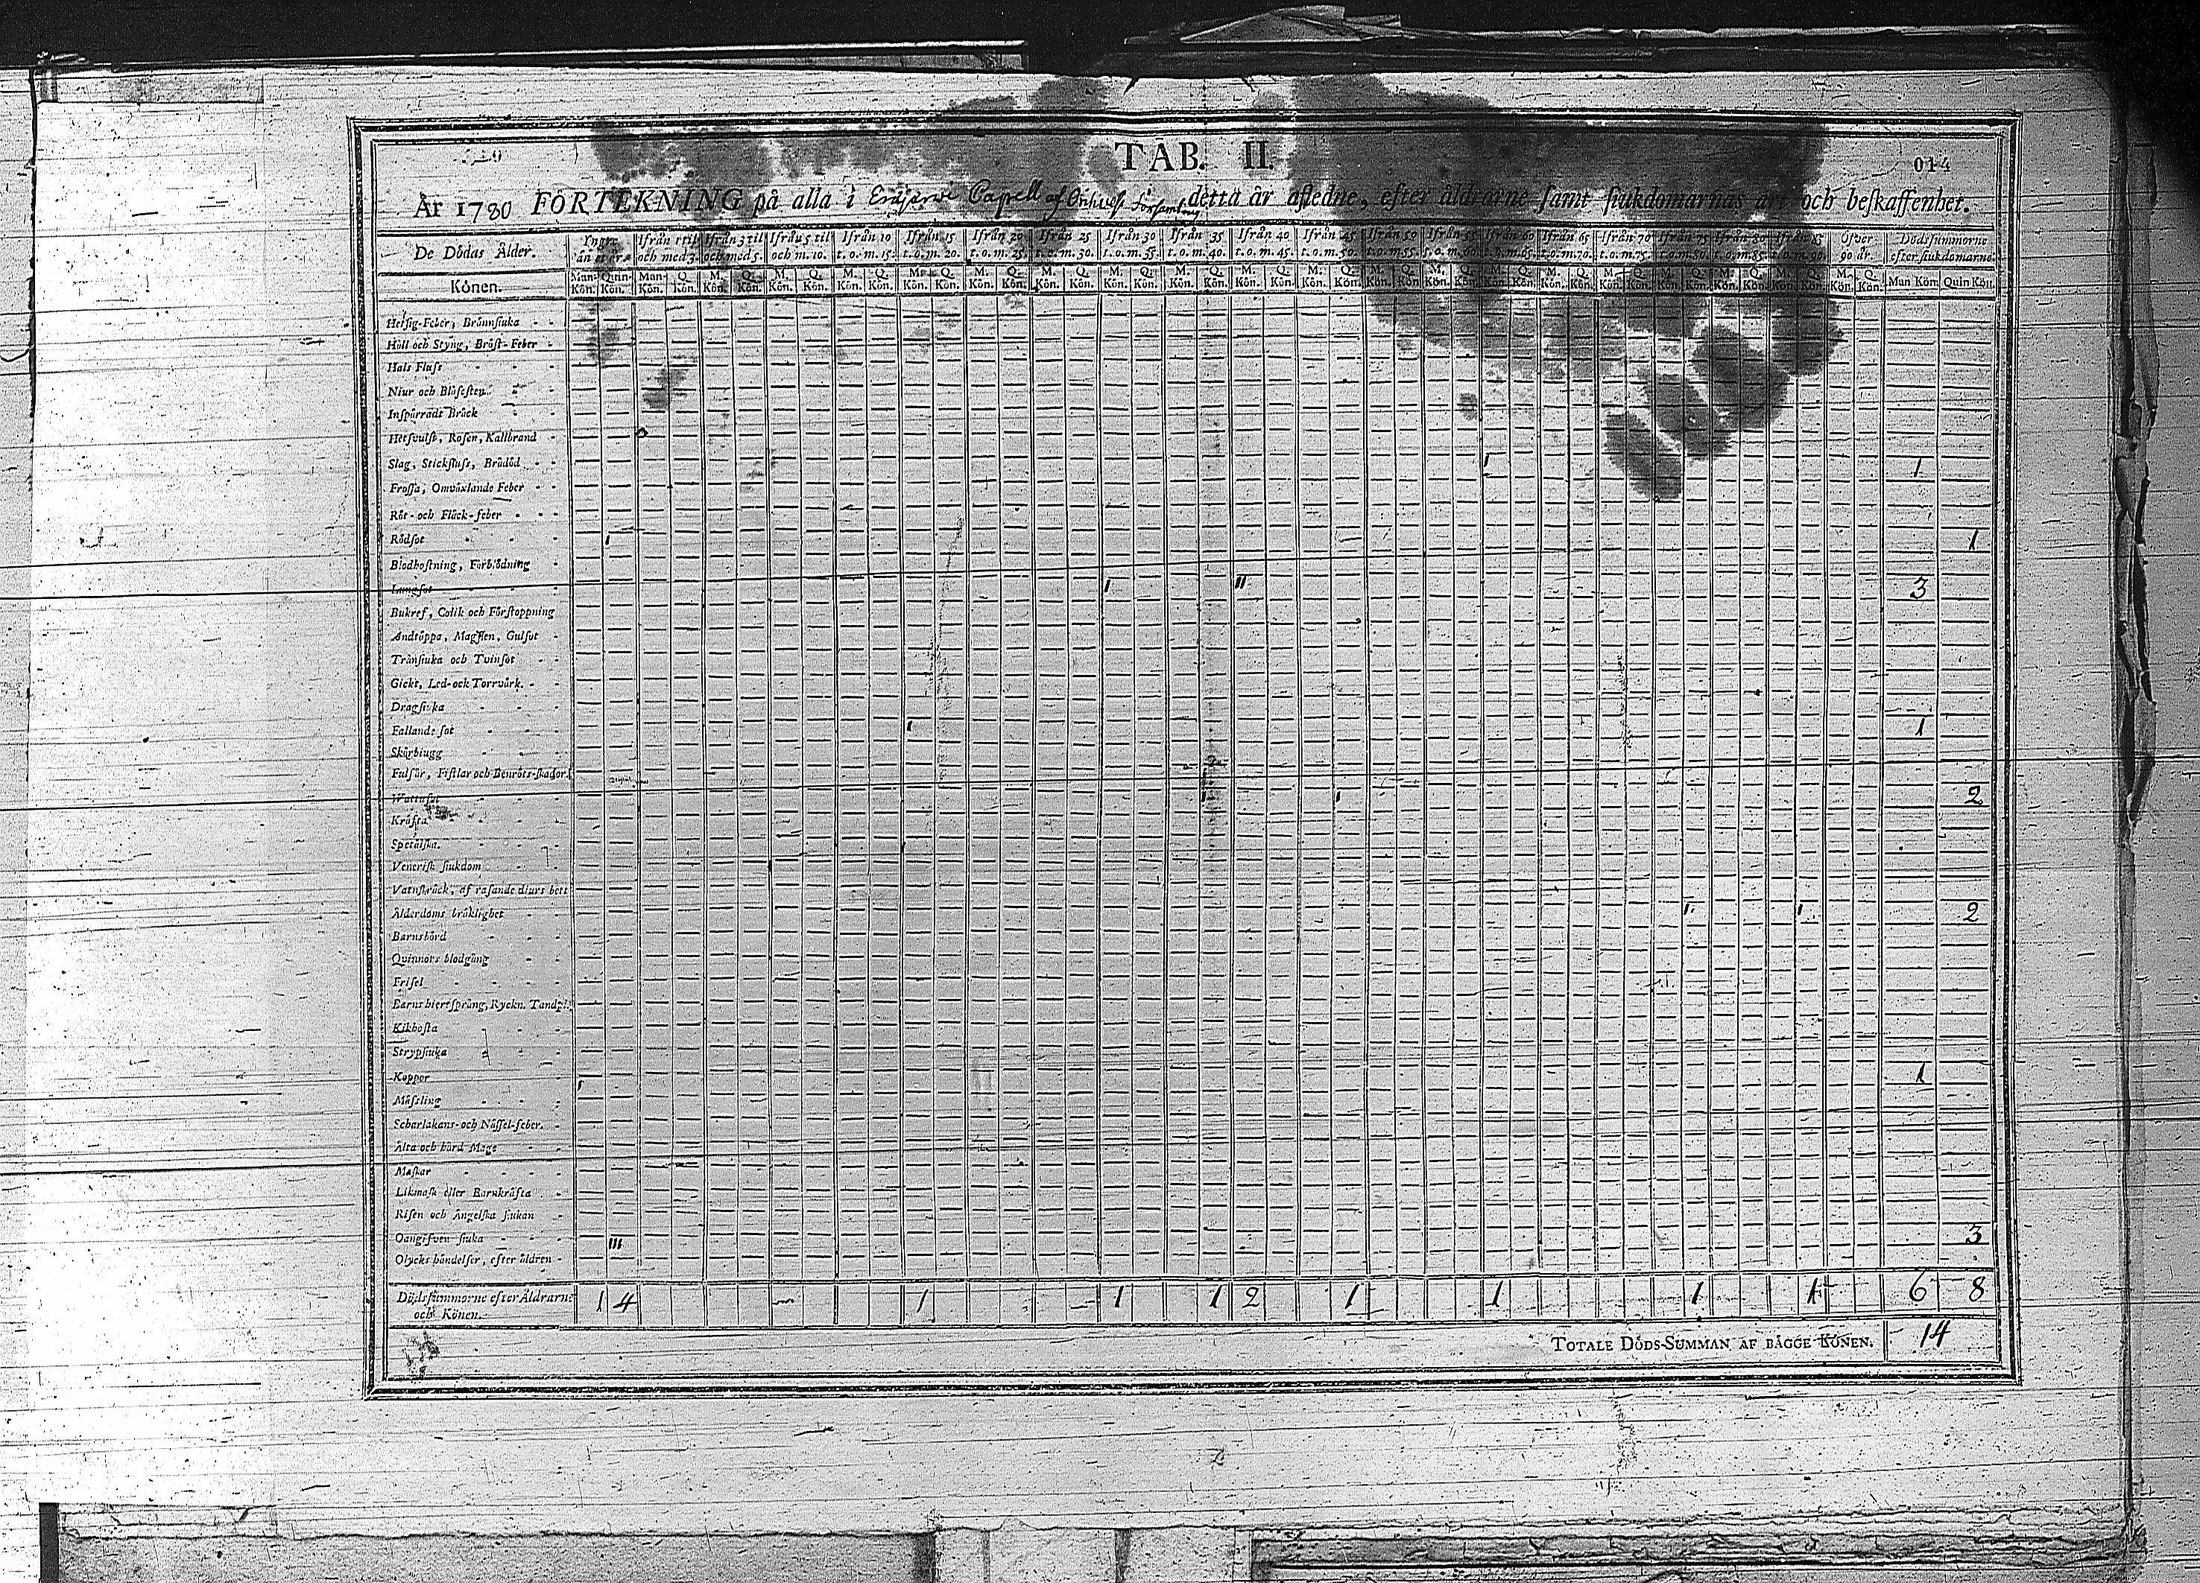 TAB. II.
014
År 1780 FÖRTEKNING på alla i Capell af detta år afledne, efter åldrarne samt siukdomarnas art och beskaffenhet.
De Dödas Ålder. Yngre än ett år Ifrån 1 til och med 3. Ifrån 3 til och med 5. Ifrån 5 til och m. 10. Ifrån 10 t. o. m. 15. Ifrån 15 t. o. m. 20. Ifrån 20 t. o. m. 25. Ifrån 25 t. o. m. 30. Ifrån 30 t. o. m. 35. Ifrån 35 t. o. m. 40. Ifrån 40 t. o. m. 45. Ifrån 45 t. o. m. 50. Ifrån 50 t. o. m. 55. Ifrån 55 t. o. m. 60. Ifrån 60 t. o. m. 65. Ifrån 65 t. o. m. 70. Ifrån 70 t. o. m. 75. Ifrån 75 t. o. m. 80. Ifrån 80 t. o. m. 85. Ifrån 85 t. o. m. 90. Öfver 90 år. Dödssummorne efter siukdomarne
Könen. Man-Kön. Quin-Kön. Man-Kön. Q. Kön. M. Kön. Q. Kön. M. Kön. Q. Kön. M. Kön. Q. Kön. M. Kön. Q. Kön. M. Kön. Q. Kön. M. Kön. Q. Kön. M. Kön. Q. Kön. M. Kön. Q. Kön. M. Kön. Q. Kön. M. Kön. Q. Kön. M. Kön. Q. Kön. M. Kön. Q. Kön. M. Kön. Q. Kön. M. Kön. Q. Kön. M. Kön. Q. Kön. M. Kön. Q. Kön. M. Kön. Q. Kön. M. Kön. Q. Kön. M. Kön. Q. Kön. Man Kön. Quin Kön.
Hetsig-Feber, Brännsiuka
Håll och Styng, Bröst-Feber
Hals Fluss
Niur och Blåsesten
Inspärradt Bråck
Hetsvulst, Rosen, Kallbrand
Slag, Stickfluss, Brådöd 1 1
Frossa, Omväxlande Feber
Röt- och Fläck-feber
Rödsot 1 1
Blodhostning, Förblödning
Lungsot 1 11 3
Bukref, Colik och Förstoppning
Andtäppa, Magplen, Gulsot
Trånsiuka och Tvinsot
Gickt, Led- och Torrvärk.
Dragsiuka
Fallande sot 1 1
Skörbiugg
Fulsår, Fistlar och Benröts-skador
Wattusot 1 1 2
Kräfta
Spetälska.
Venerisk siukdom
Vatnskräck, af rasande diurs bett
Ålderdoms bräklighet 1 1 2
Barnsbörd
Quinnors blodgång
Frisel
Barns hiertsprång, Ryckn. Tandsl.
Kikhosta
Strypsiuka
Koppor 1 1
Mässling
Scharlakans- och Nässel-feber.
Älta och hård Mage
Maskar
Likmask eller Barnkräfta
Risen och Ängelska siukan
Oangifven siuka 111 3
Olycks händelser, efter åldren
Dödssummorne efter Åldrarne och Könen. 1 4 1 1 1 2 1 1 1 1 6 8
TOTALE DÖDS-SUMMAN AF BÄGGE KÖNEN. 14